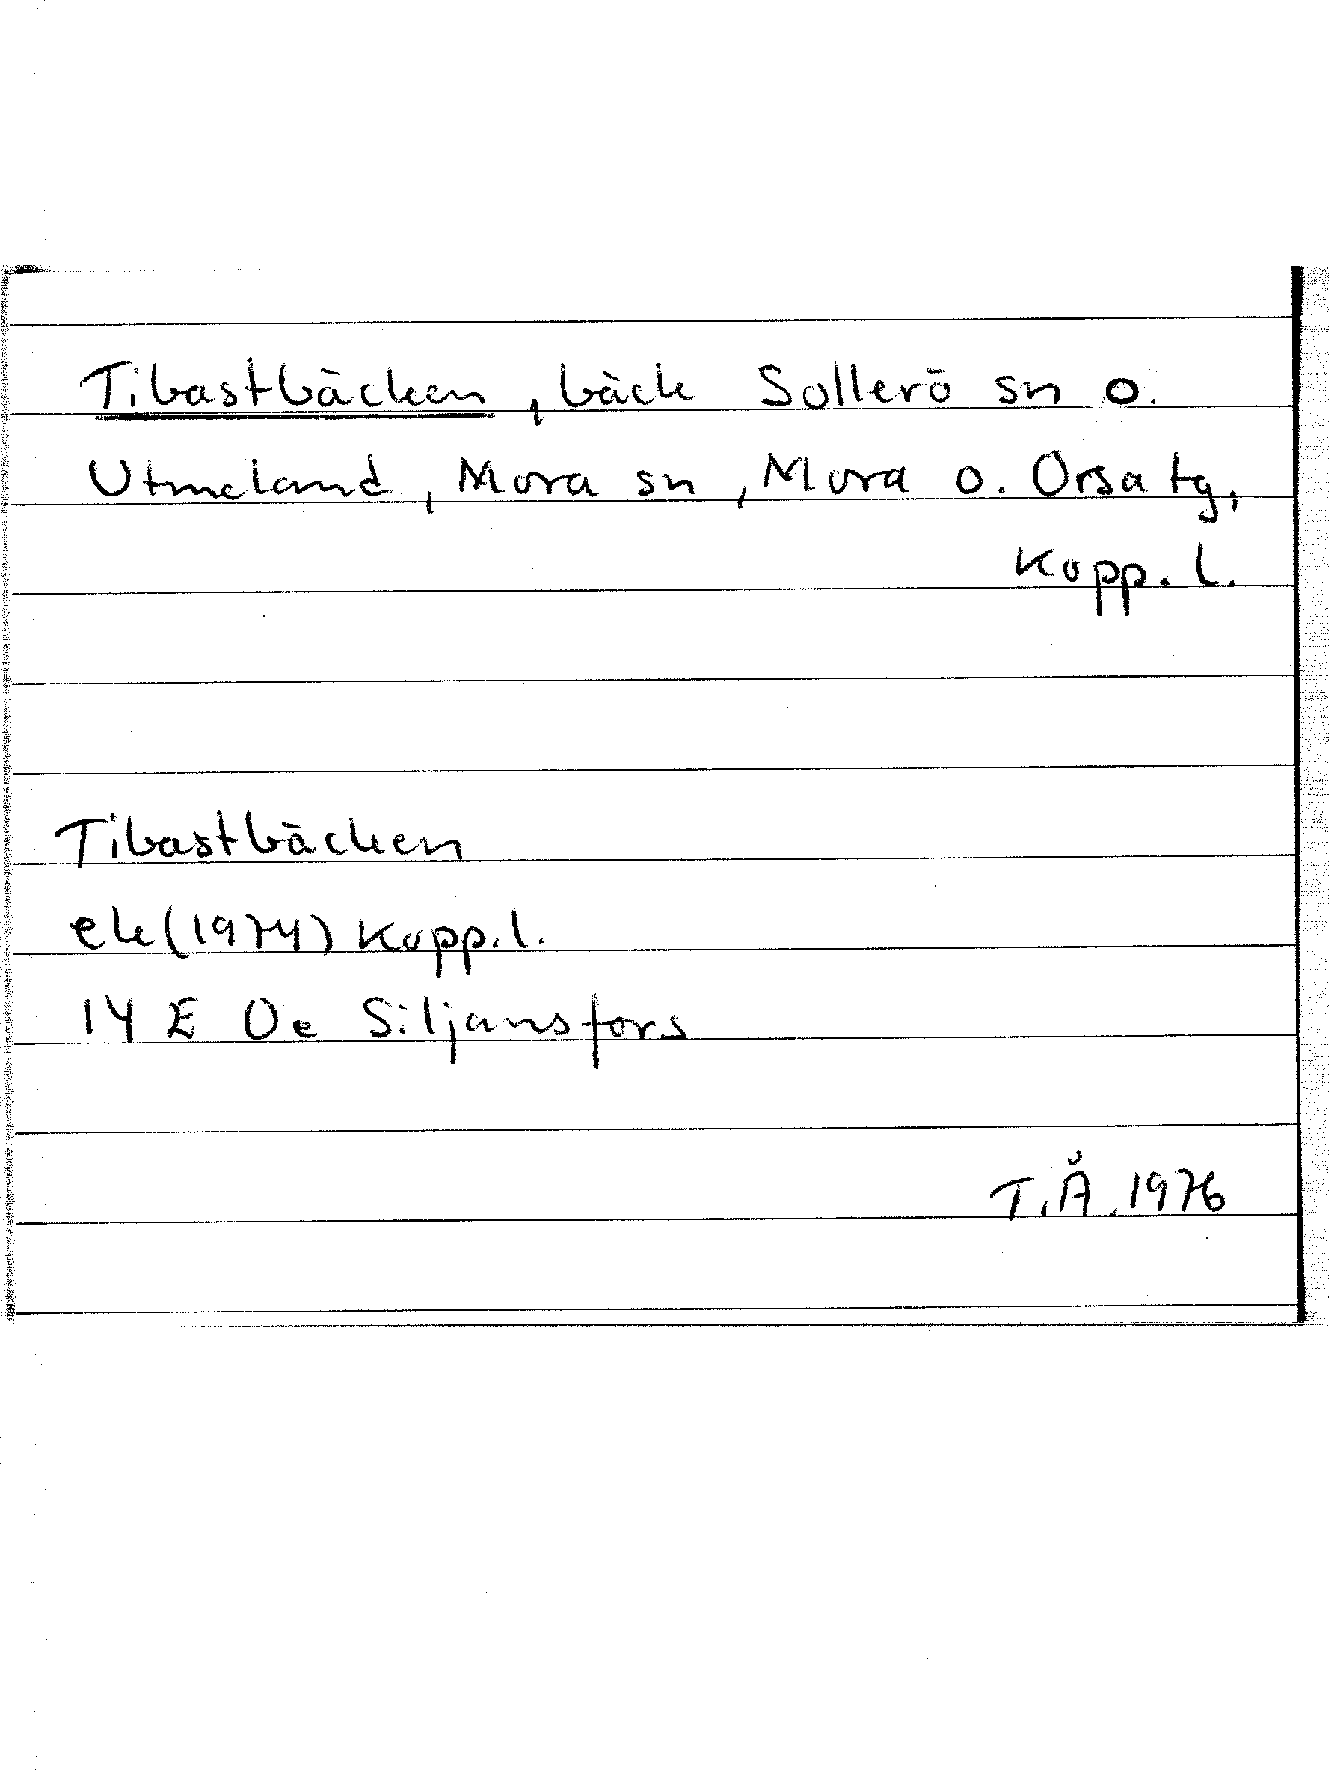 Tibastbäcken, bäck Sollerö sn o.
Utmeland, Mora sn, Mora o. Orsa tg,
Kopp. l.
Tibastbäcken
ek (1974) Kopp. l.
14 E 0e Siljansfors
T.Å. 1976